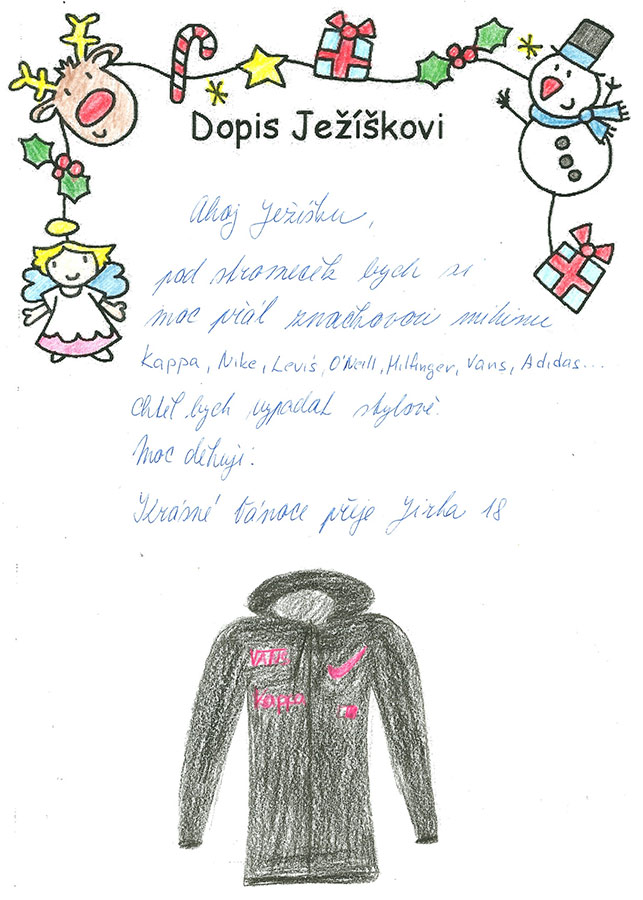 Dopis Ježíškovi
Ahoj Ježíšku,
pod stromeček bych si
moc přál značkovou mikinu
Kappa, Nike, Levi's, O'Neill, Hilfinger, Vans, Adidas...
chtěl bych vypadat stylově.
Moc děkuji.
Krásné Vánoce přeje Jirka 18
VANS
Kappa